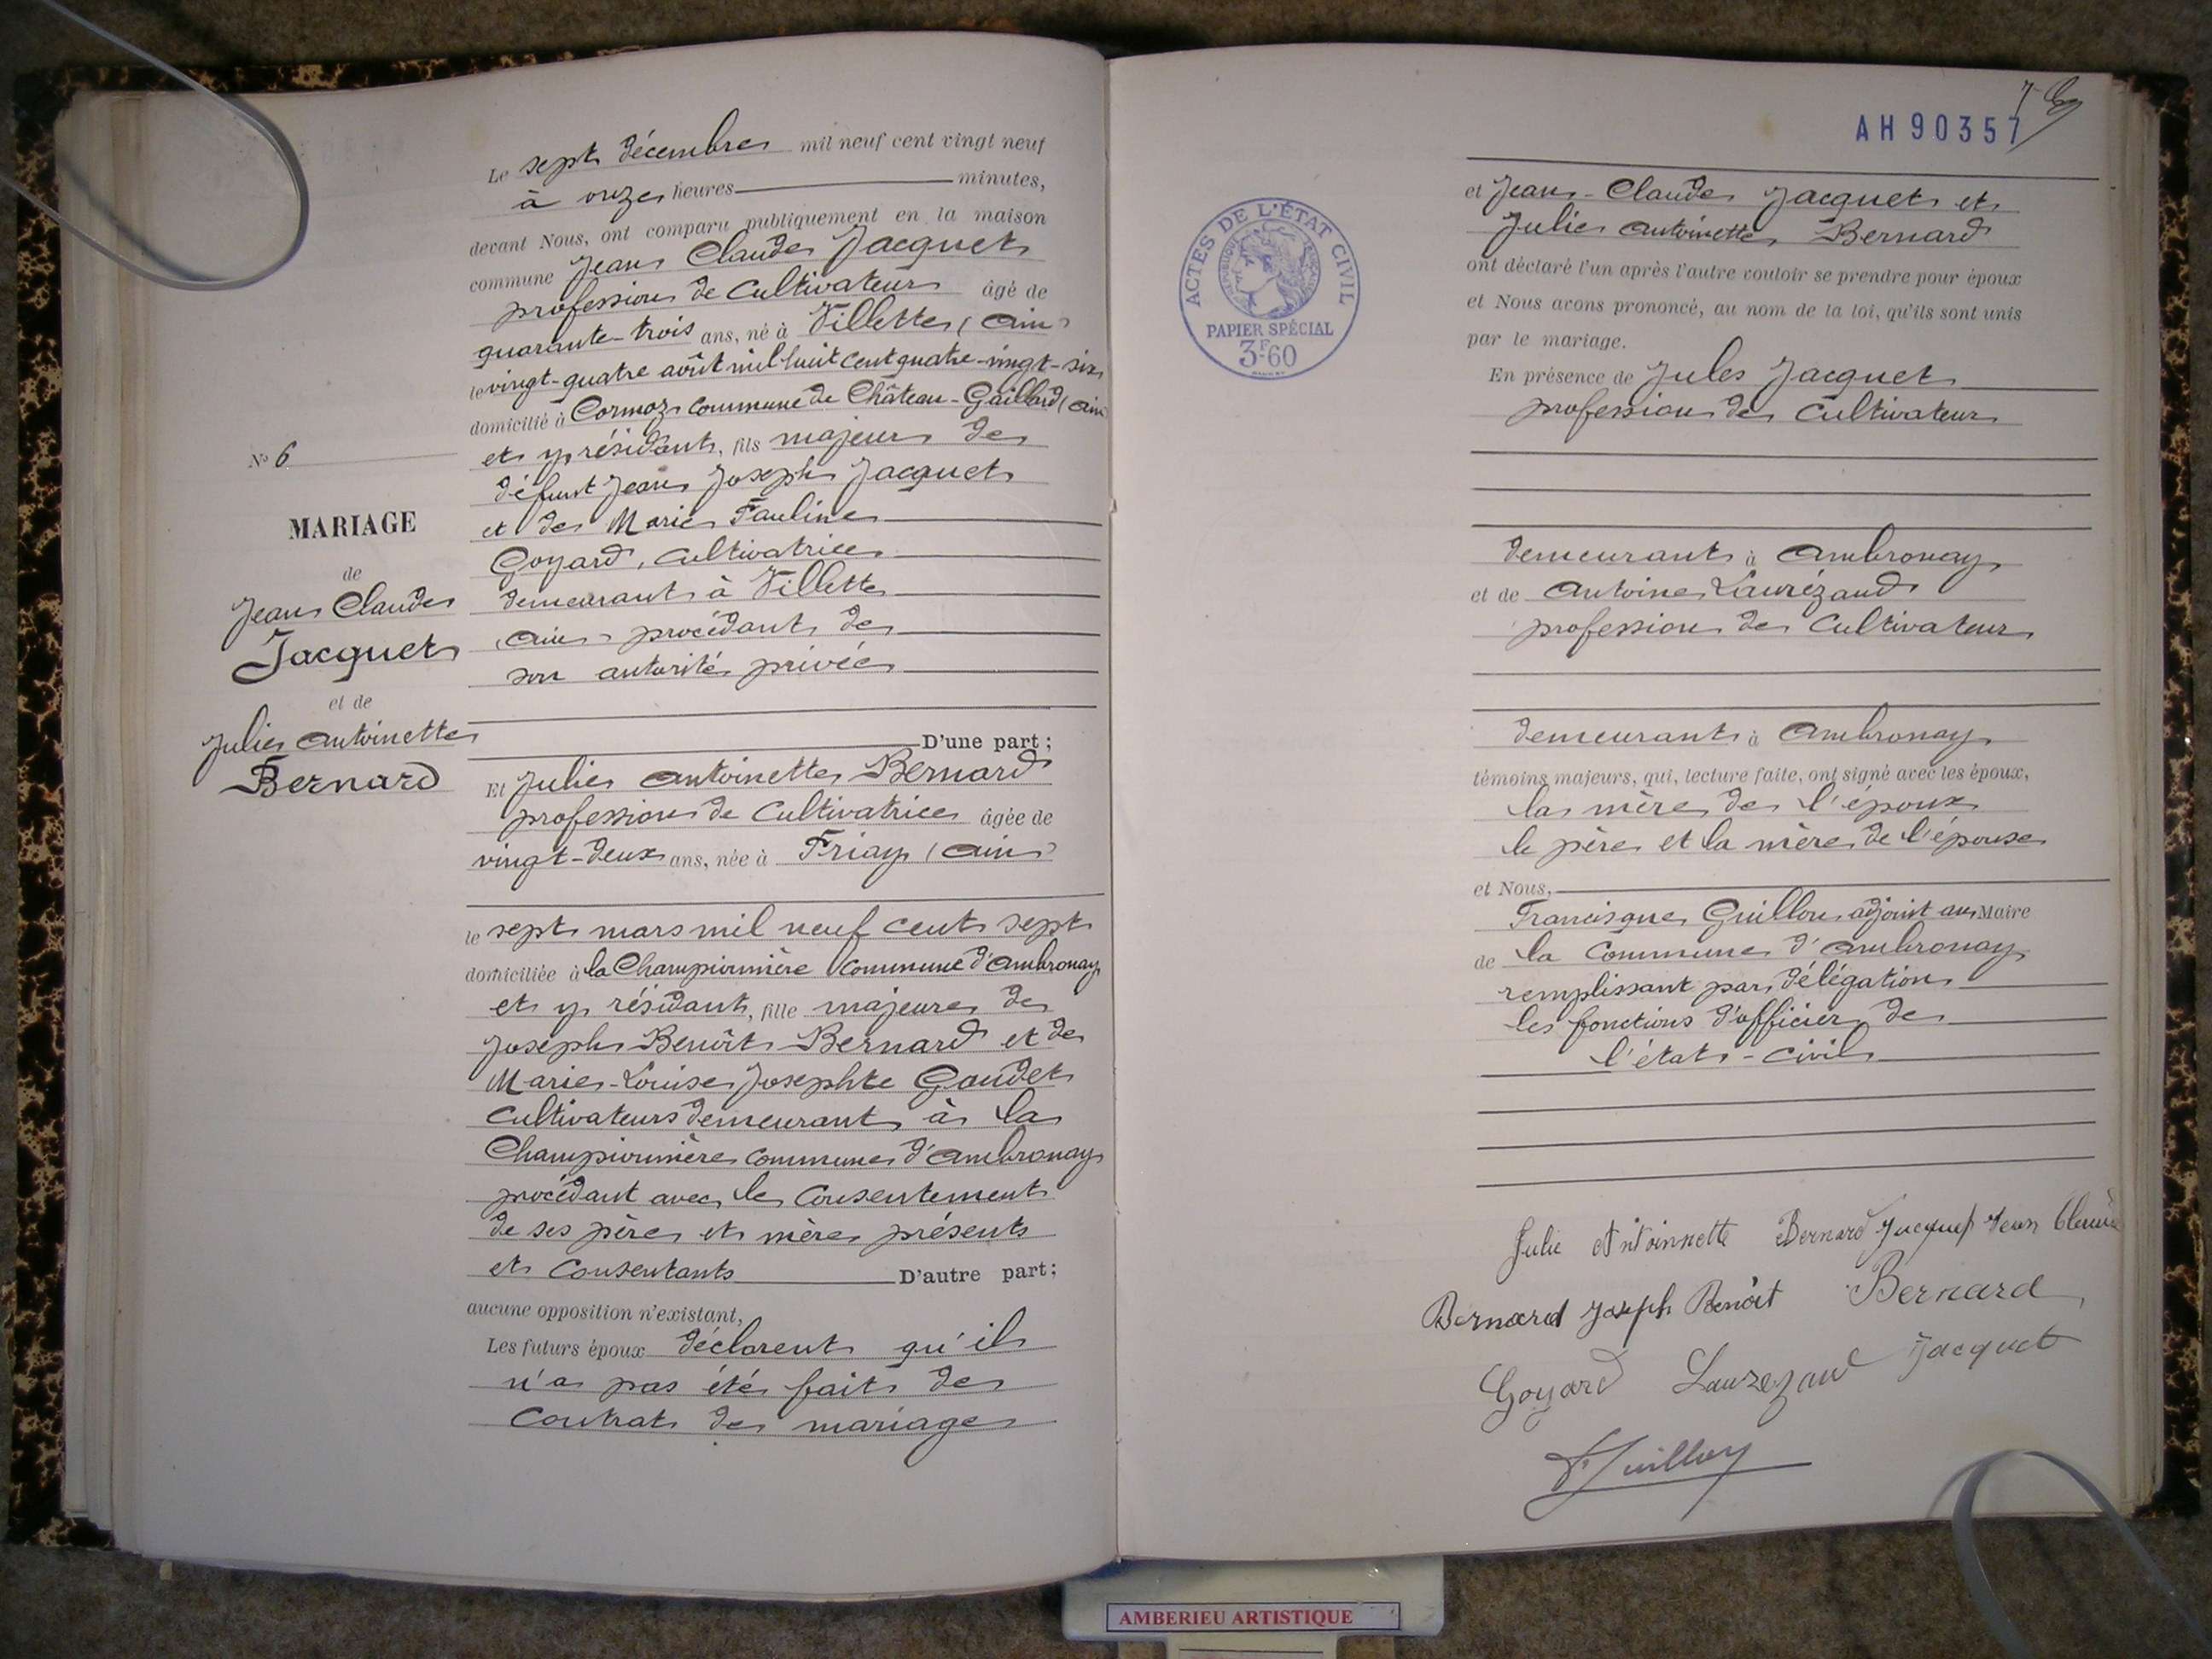 N° 6
MARIAGE
de
Jean Claude
Jacquet
et de
Julie Antoinette
Bernard
Le sept décembre mil neuf cent vingt neuf
à onze heures minutes,
devant Nous, ont comparu publiquement en la maison
commune Jean Claude Jacquet
profession de Cultivateur âgé de
quarante-trois ans, né à Villette (Ain)
le vingt-quatre août mil huit cent quatre-vingt-six
domicilié à Cormoz commune de Château-Gaillard (Ain
et y résidant, fils majeur de
défunt Jean Joseph Jacquet
et de Marie Pauline
Goyard, cultivatrice
demeurant à Villette
Ain procédant de
son autorité privée
D'une part;
Et Julie Antoinette Bernard
profession de Cultivatrice âgée de
vingt-deux ans, née à Priay (Ain)
le sept mars mil neuf cent sept
domiciliée à la Championnière commune d'Ambronay
et y résidant, fille majeure de
Joseph Benoît Bernard et de
Marie-Louise Josephte Goudet
cultivateurs demeurant à la
Championnière commune d'Ambronay
procédant avec le consentement
de ses père et mère présents
et consentants D'autre part;
aucune opposition n'existant,
Les futurs époux déclarent qu'il
n'a pas été fait de
contrat de mariage
7
AH90357
ACTES DE L'ÉTAT CIVIL
PAPIER SPÉCIAL
3F60
et Jean-Claude Jacquet et
Julie Antoinette Bernard
ont déclaré l'un après l'autre vouloir se prendre pour époux
et Nous avons prononcé, au nom de la loi, qu'ils sont unis
par le mariage.
En présence de Jules Jacquet
profession de Cultivateur
demeurant à Ambronay
et de Antoine Laurézand
profession de Cultivateur
demeurant à Ambronay
témoins majeurs, qui, lecture faite, ont signé avec les époux,
la mère de l'époux
le père et la mère de l'épouse
et Nous,
Francisque Guillon adjoint au Maire
de la Commune d'Ambronay
remplissant par délégation
les fonctions d'officier de
l'état-civil
Julie Antoinnette Bernard Jacquet Jean Claude
Bernard Joseph Benoit Bernard
Goyard Laurezand Jacquet
AMBERIEU ARTISTIQUE